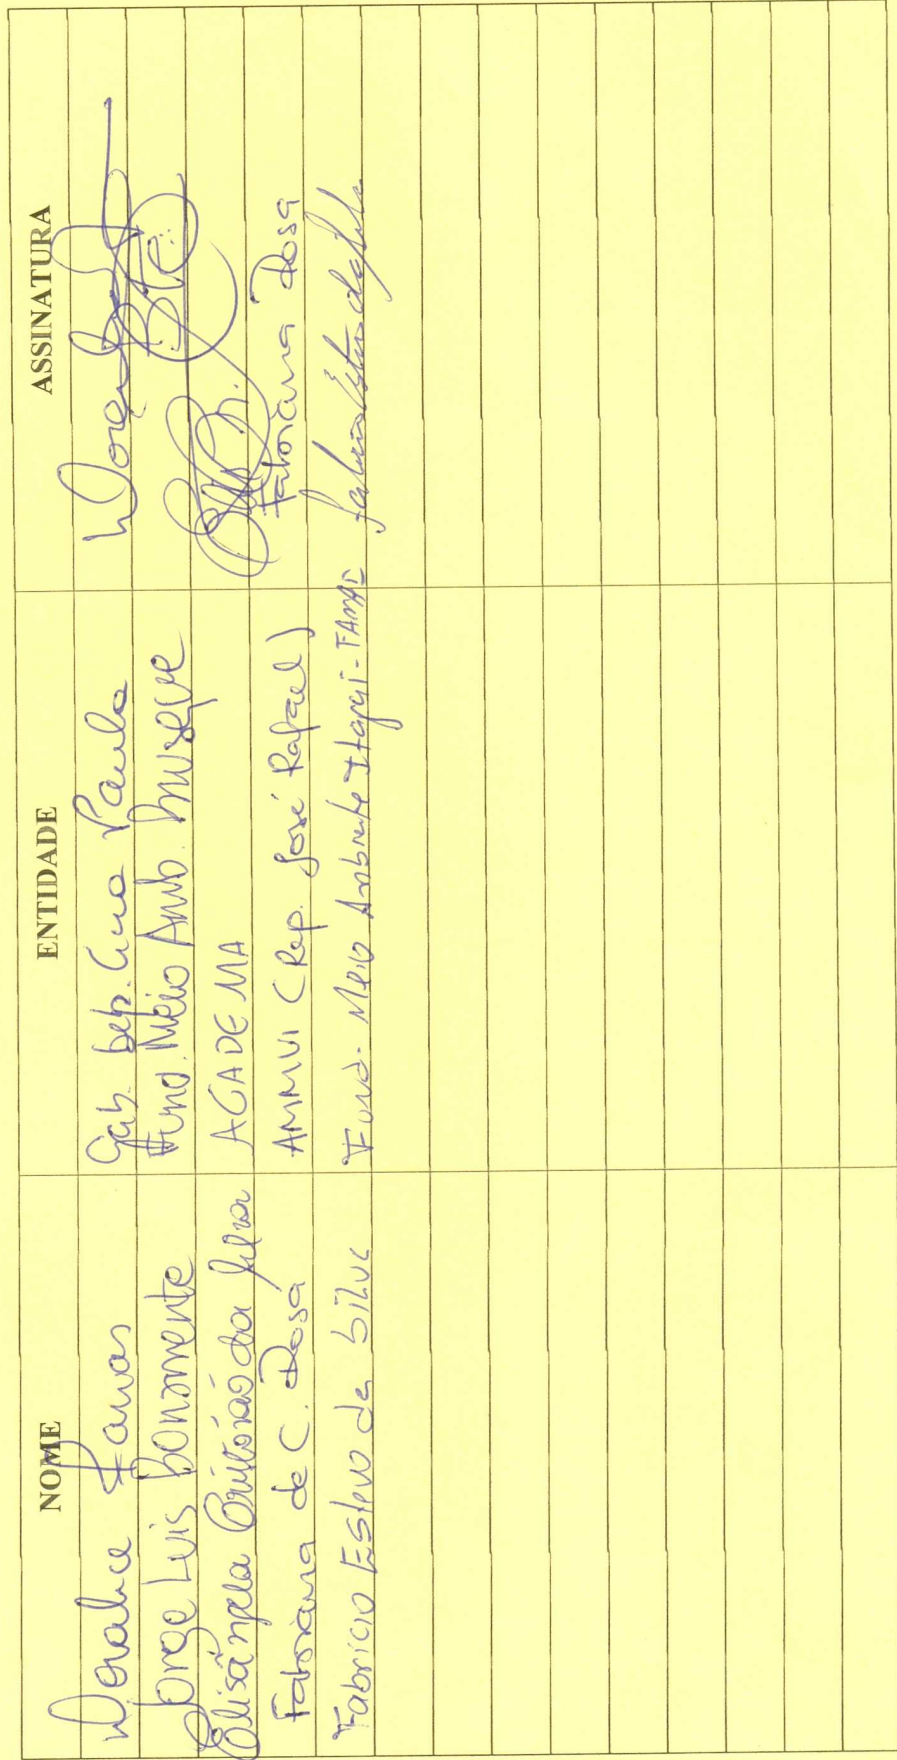 NOME ENTIDADE ASSINATURA
Doralice Gab. Dep. Ana Paula
Jorge Luis Bonamente Fund. Meio Amb. Brusque
Elisângela Cristóvão da Silva ACADEMA
Fabiana de C. Rosa AMMVI (Rep. José Rafael) Fabiana Rosa
Fabricio Estevo da Silva Fund. Meio Ambiente Itajaí - FAMAI Fabricio Estevo da Silva